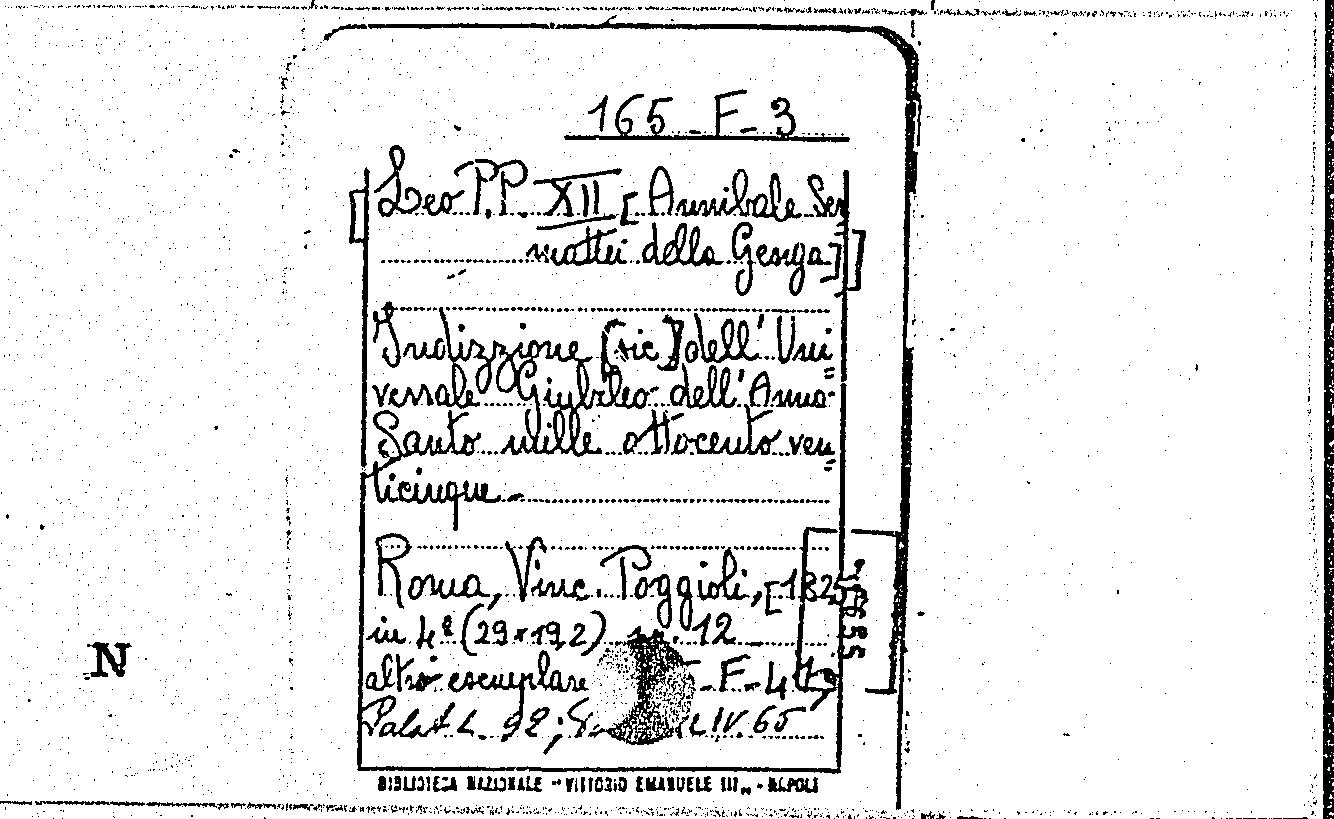 165_F_3
Leo P.P. XII [Annibale Ser=
mattei della Genga]
Indizzione [sic] dell' Uni=
versale Giubileo dell'Anno
Santo mille ottocento ven=
ticinque_
Roma, Vinc. Poggioli, [1825]
in 4º (29x19,2) pp. 12
altro esemplare _F_4
Palat. L. 92; LIV.65
N
BIBLIOTECA NAZIONALE "VITTORIO EMANUELE III" - NAPOLI